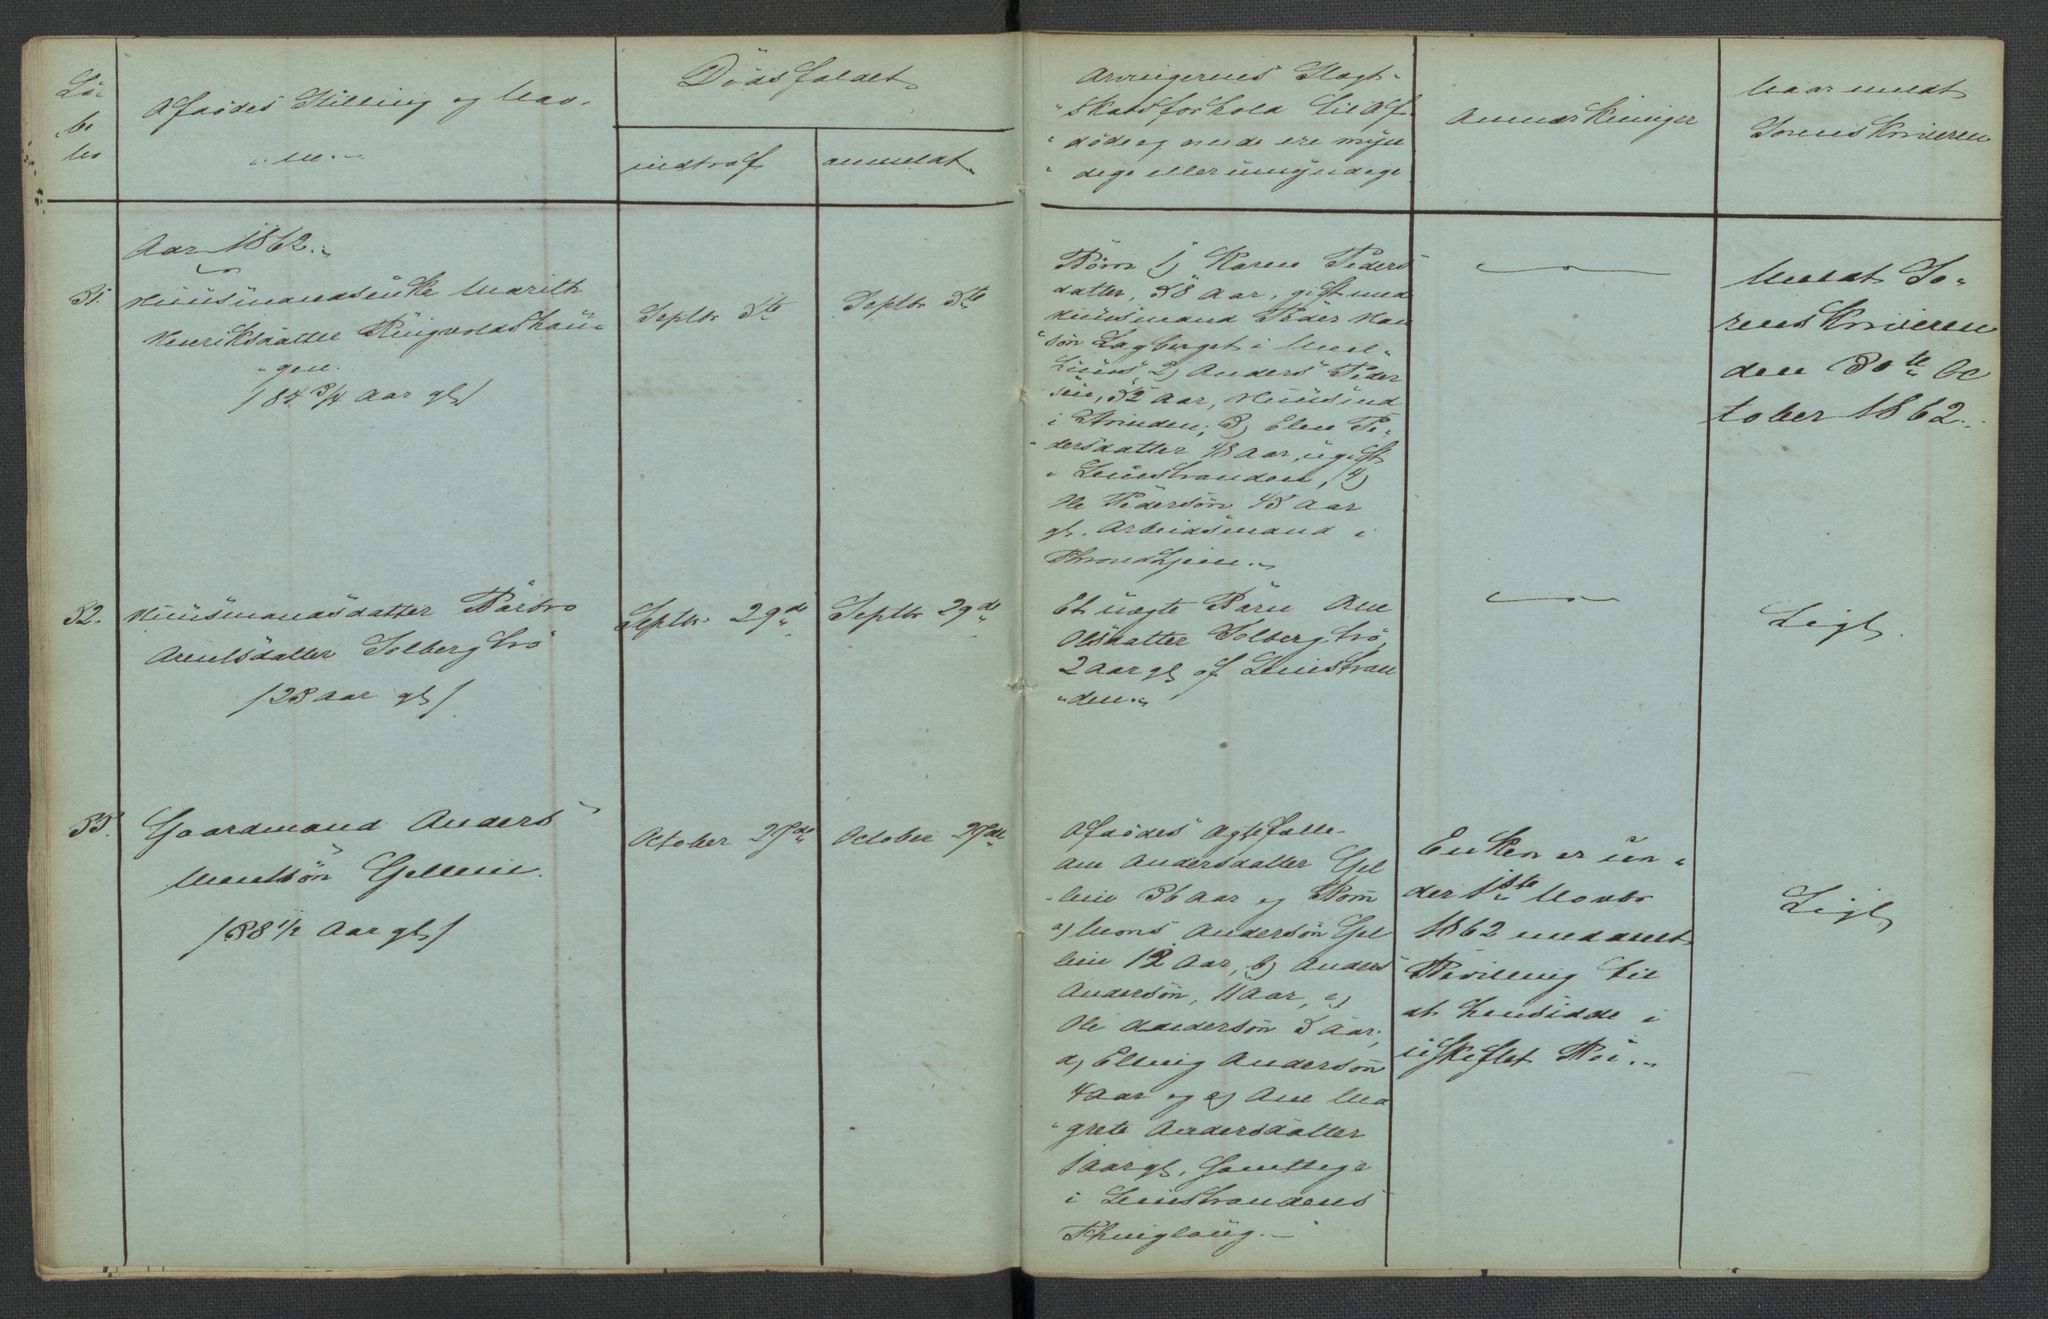 Lö-
be
No
Afdödes Stilling og Nav-
n
Dödsfaldet
indtraf
anmeldt
Arvingernes Slægt-
skabsforhold til Af-
döde og om de ere myn
dige eller umyndige
Anmærkninger
Naar meldt
Sorenskriveren
Aar 1862.
31.
Huusmandsenke Marith
Henriksdatter Ringvoldshau-
gen.
/84 3/4 Aar gl/
Septbr 3te
Septbr 5te
Börn 1) Karen Peders
datter, 58 Aar, gift med
Huusmand Peder Han
sön Lagberget i Meel-
huus 2) Anders Peder
sen, 52 Aar, Huusmd
i Strinden; 3) Elen Pe-
dersdatter 48 Aar, ugift
i Leinstranden, 4)
Ole Pedersön 45 Aar
gl. Arbeidsmand i
Throndhjem.
Meldt So-
renskriveren
den 30te Oc
tober 1862.
32.
Huusmandsdatter Barbro
Arntsdatter Solbergtrö
/28 Aar gl/
Septbr 29de
Septbr 29de
Et uægte Barn Ane
Olsdatter Solbergtrö,
2 Aar gl af Leinstran
den.
Ligl.
33.
Gaardmand Anders
Monsön Gellein.
/38 1/2 Aar gl/
October 27de
October 27de
Afdödes Ægtefælle
Ane Andersdatter Gel
lein 36 Aar og Börn
a) Mons Andersön Gel
lein 12 Aar, b) Anders
Andersön, 11 Aar, c)
Ole Andersön 5 Aar,
d) Elling Andersön
4 Aar og e) Ane Ma
grete Andersdatter
1 Aar gl, Samtlige
i Leinstrandens
Thinglaug.
Enken er un-
der 1ste Novbr
1862 meddeelt
Bevilling til
at hensidde i
uskiftet Bo.
Ligl